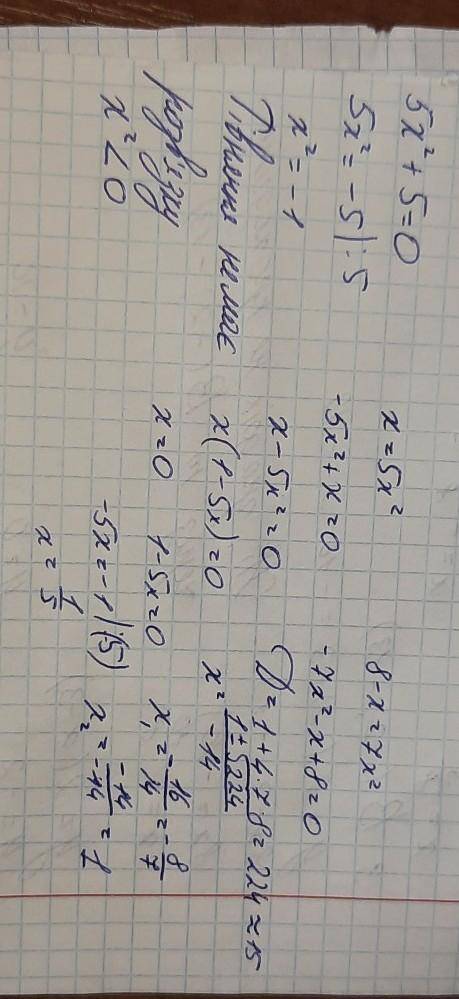 5x² + 5 = 0
5x² = -5 | : 5
x² = -1
Рівняння немає
розвʼязку
x² < 0
x = 5x²
-5x² + x = 0
x - 5x² = 0
x(1 - 5x) = 0
x = 0 1 - 5x = 0
-5x = -1 | :(5)
x = 1/5
8 - x = 7x²
-7x² - x + 8 = 0
D = 1 + 4 · 7 · 8 = 224 ≈ 15
x² = (1 ± 5224)/-14
x₁ = -16/14 = -8/7
x² = -14/-14 = 1